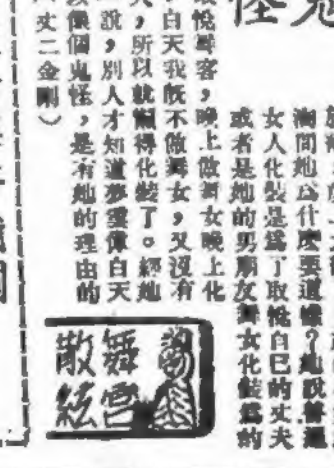 鬼怪
問她爲什麽要這樣?她說普通
女人化裝是爲了取悅自己的丈夫
或者是她的男朋友舞女化裝爲的
悅舞客,晚上做舞女晚上化
白天我旣不做舞女,又沒有
,所以就懶得化裝了。經她
說,別人才知道夢雲像白天
像個鬼怪,是有她的理由的
丈二金剛)
舞宮
散絃